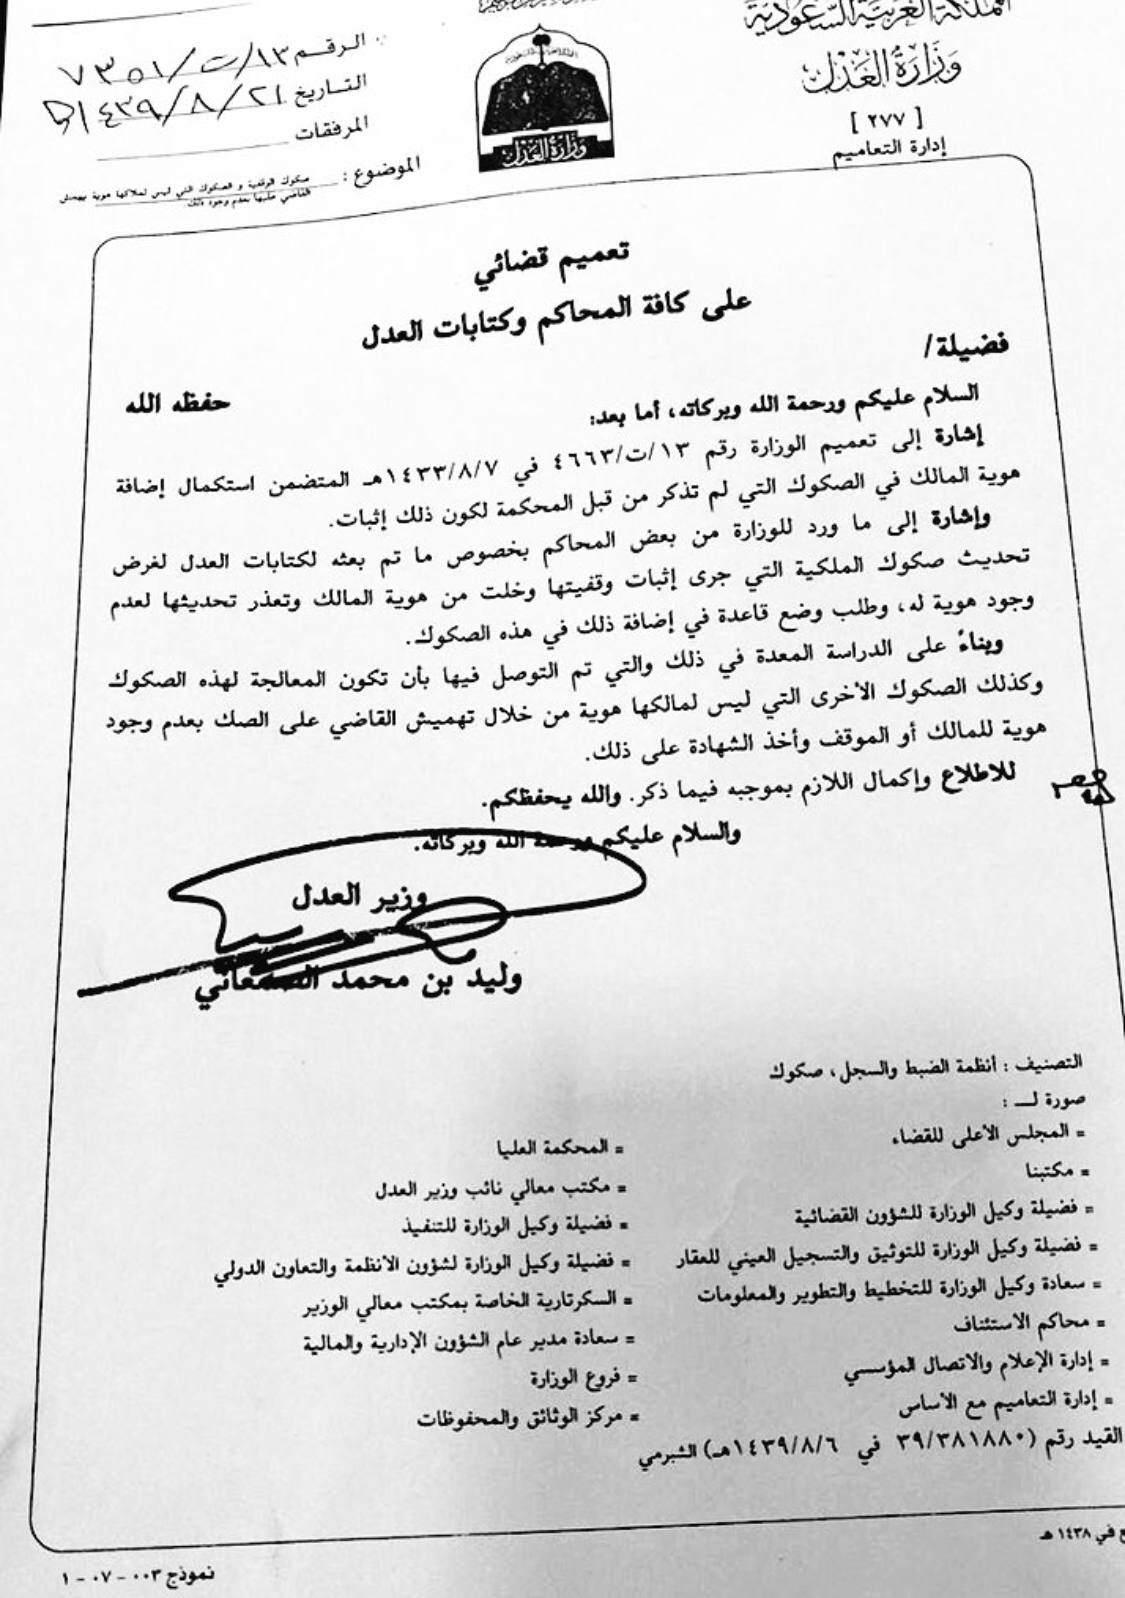 المملكة العربية السعودية
وزارة العدل
[ ٢٧٧ ]
إدارة التعاميم
وزارة العدل
الرقم ١٣/ت/٧٣٥١
التاريخ ١٤٣٩/٨/٢١هـ
المرفقات
الموضوع : صكوك الوقفية و الصكوك التي ليس لملاكها هوية يهمش
القاضي عليها بعدم وجود ذلك.
تعميم قضائي
على كافة المحاكم وكتابات العدل
فضيلة/
حفظه الله
السلام عليكم ورحمة الله وبركاته، أما بعد:
إشارة إلى تعميم الوزارة رقم ١٣/ت/٤٦٦٣ في ١٤٣٣/٨/٧هـ المتضمن استكمال إضافة
هوية المالك في الصكوك التي لم تذكر من قبل المحكمة لكون ذلك إثبات.
وإشارة إلى ما ورد للوزارة من بعض المحاكم بخصوص ما تم بعثه لكتابات العدل لغرض
تحديث صكوك الملكية التي جرى إثبات وقفيتها وخلت من هوية المالك وتعذر تحديثها لعدم
وجود هوية له، وطلب وضع قاعدة في إضافة ذلك في هذه الصكوك.
وبناءً على الدراسة المعدة في ذلك والتي تم التوصل فيها بأن تكون المعالجة لهذه الصكوك
وكذلك الصكوك الأخرى التي ليس لمالكها هوية من خلال تهميش القاضي على الصك بعدم وجود
هوية للمالك أو الموقف وأخذ الشهادة على ذلك.
للاطلاع وإكمال اللازم بموجبه فيما ذكر. والله يحفظكم.
والسلام عليكم ورحمة الله وبركاته.
وزير العدل
وليد بن محمد الصمعاني
التصنيف : أنظمة الضبط والسجل، صكوك
صورة لـــ :
= المجلس الأعلى للقضاء
= المحكمة العليا
= مكتبنا
= مكتب معالي نائب وزير العدل
= فضيلة وكيل الوزارة للشؤون القضائية
= فضيلة وكيل الوزارة للتنفيذ
= فضيلة وكيل الوزارة للتوثيق والتسجيل العيني للعقار
= فضيلة وكيل الوزارة لشؤون الأنظمة والتعاون الدولي
= سعادة وكيل الوزارة للتخطيط والتطوير والمعلومات
= السكرتارية الخاصة بمكتب معالي الوزير
= محاكم الاستئناف
= سعادة مدير عام الشؤون الإدارية والمالية
= إدارة الإعلام والاتصال المؤسسي
= فروع الوزارة
= إدارة التعاميم مع الأساس
= مركز الوثائق والمحفوظات
القيد رقم (٣٩/٣٨١٨٨٠ في ١٤٣٩/٨/٦هـ) الشبرمي
في ١٤٣٨ هـ
نموذج ٠٠٣ - ٠٧ - ١